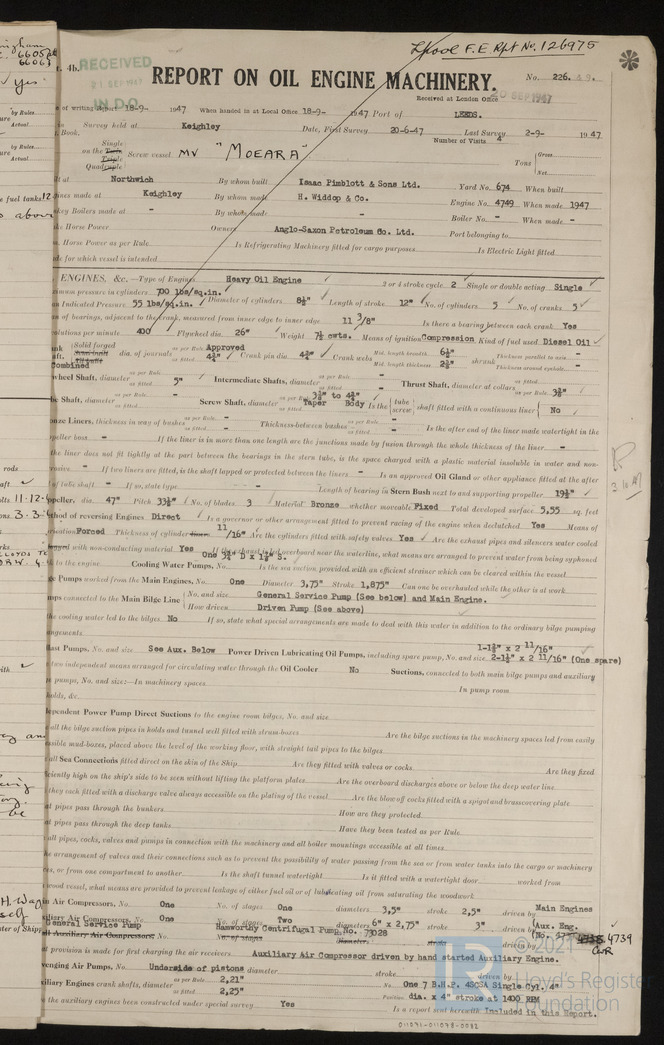 Lpool F.E. Rpt No. 126975
t. 4b.
RECEIVED
21 SEP 1947
IN D.O.
REPORT ON OIL ENGINE MACHINERY.
No. 226.
Received at London Office 20 SEP 1947
e of writing Report 18-9- 1947 When handed in at Local Office 18-9- 1947 Port of LEEDS.
in Survey held at Keighley Date, First Survey 20-6-47 Last Survey 2-9- 1947
. Book. Number of Visits 4
on the Single Twin Triple Quadruple Screw vessel MV "MOEARA" Tons Gross Net
t at Northwich By whom built Isaac Pimblott & Sons Ltd. Yard No. 674 When built
ines made at Keighley By whom made H. Widdop & Co. Engine No. 4749 When made 1947
key Boilers made at - By whom made - Boiler No. - When made -
ke Horse Power Owners Anglo-Saxon Petroleum Co. Ltd. Port belonging to
. Horse Power as per Rule. Is Refrigerating Machinery fitted for cargo purposes Is Electric Light fitted
de for which vessel is intended
ENGINES, &c.—Type of Engines Heavy Oil Engine 2 or 4 stroke cycle 2 Single or double acting Single
mum pressure in cylinders 700 lbs/sq.in. Diameter of cylinders 8½" Length of stroke 12" No. of cylinders 5 No. of cranks 5
an Indicated Pressure 55 lbs/sq.in.
an of bearings, adjacent to the crank, measured from inner edge to inner edge 11 3/8" Is there a bearing between each crank Yes
olutions per minute 400 Flywheel dia. 26" Weight 7½ cwts. Means of ignition Compression Kind of fuel used Diesel Oil
Solid forged dia. of journals as per Rule Approved as fitted 4¾" Crank pin dia. 4¾" Crank webs Mid. length breadth 6½" Mid. length thickness 2⅜" shrunk Thickness parallel to axis - Thickness around eyehole -
Combined
wheel Shaft, diameter as per Rule as fitted 5" Intermediate Shafts, diameter as per Rule as fitted - Thrust Shaft, diameter at collars as fitted as per Rule 3¾"
be Shaft, diameter as per Rule as fitted - Screw Shaft, diameter as per Rule as fitted Taper Body Is the tube screw shaft fitted with a continuous liner No
onze Liners, thickness in way of bushes as per Rule as fitted - Thickness between bushes as per Rule as fitted - Is the after end of the liner made watertight in the
peller boss - If the liner is in more than one length are the junctions made by fusion through the whole thickness of the liner -
the liner does not fit tightly at the part between the bearings in the stern tube, is the space charged with a plastic material insoluble in water and non-
rosive - If two liners are fitted, is the shaft lapped or protected between the liners - Is an approved Oil Gland or other appliance fitted at the after
of tube shaft - If so, state type - Length of bearing in Stern Bush next to and supporting propeller 19½"
opeller, dia. 47" Pitch 33½" No. of blades 3 Material Bronze whether moveable Fixed Total developed surface 5,55 sq. feet
thod of reversing Engines Direct Is a governor or other arrangement fitted to prevent racing of the engine when declutched Yes Means of
rication Forced Thickness of cylinder liners 11/16" Are the cylinders fitted with safety valves Yes Are the exhaust pipes and silencers water cooled
lagged with non-conducting material Yes If the exhaust is led overboard near the waterline, what means are arranged to prevent water being syphoned
k to the engine Cooling Water Pumps, No. Is the sea suction provided with an efficient strainer which can be cleared within the vessel
ge Pumps worked from the Main Engines, No. One Diameter 3,75" Stroke 1,875" Can one be overhauled while the other is at work
mps connected to the Main Bilge Line No. and size General Service Pump (See below) and Main Engine.
How driven Driven Pump (See above)
the cooling water led to the bilges No If so, state what special arrangements are made to deal with this water in addition to the ordinary bilge pumping
angements
last Pumps, No. and size See Aux. Below Power Driven Lubricating Oil Pumps, including spare pump, No. and size 1-1½" x 2 11/16" 2-1½" x 2 11/16" (One spare)
two independent means arranged for circulating water through the Oil Cooler No Suctions, connected to both main bilge pumps and auxiliary
e pumps, No. and size:—In machinery spaces In pump room
holds, &c.
dependent Power Pump Direct Suctions to the engine room bilges, No. and size
all the bilge suction pipes in holds and tunnel well fitted with strum-boxes Are the bilge suctions in the machinery spaces led from easily
essible mud-boxes, placed above the level of the working floor, with straight tail pipes to the bilges
all Sea Connections fitted direct on the skin of the Ship Are they fitted with valves or cocks Are they fixed
ficiently high on the ship's side to be seen without lifting the platform plates Are the overboard discharges above or below the deep water line
they each fitted with a discharge valve always accessible on the plating of the vessel Are the blow off cocks fitted with a spigot and brass covering plate
at pipes pass through the bunkers How are they protected
at pipes pass through the deep tanks Have they been tested as per Rule
all pipes, cocks, valves and pumps in connection with the machinery and all boiler mountings accessible at all times
he arrangement of valves and their connections such as to prevent the possibility of water passing from the sea or from water tanks into the cargo or machinery
es, or from one compartment to another Is the shaft tunnel watertight Is it fitted with a watertight door worked from
wood vessel, what means are provided to prevent leakage of either fuel oil or of lubricating oil from saturating the woodwork
in Air Compressors, No. One No. of stages One diameters 3,5" stroke 2,5" driven by Main Engines
xiliary Air Compressors, No. One No. of stages Two diameters 6" x 2,75" stroke 3" driven by Aux. Eng.
General Service Pump Hamworthy Centrifugal Pump No. 73028 driven by (No. 4739
at provision is made for first charging the air receivers Auxiliary Air Compressor driven by hand started Auxiliary Engine.
venging Air Pumps, No. Underside of pistons diameter stroke driven by
xiliary Engines crank shafts, diameter as per Rule 2,21" as fitted 2,25" No. One 7 B.H.P. 4SCSA Single Cyl. 4"
Position dia. x 4" stroke at 1400 RPM
the auxiliary engines been constructed under special survey Yes Is a report sent herewith Included in this Report.
© 2021
Lloyd's Register
Foundation
011071-011078-0082